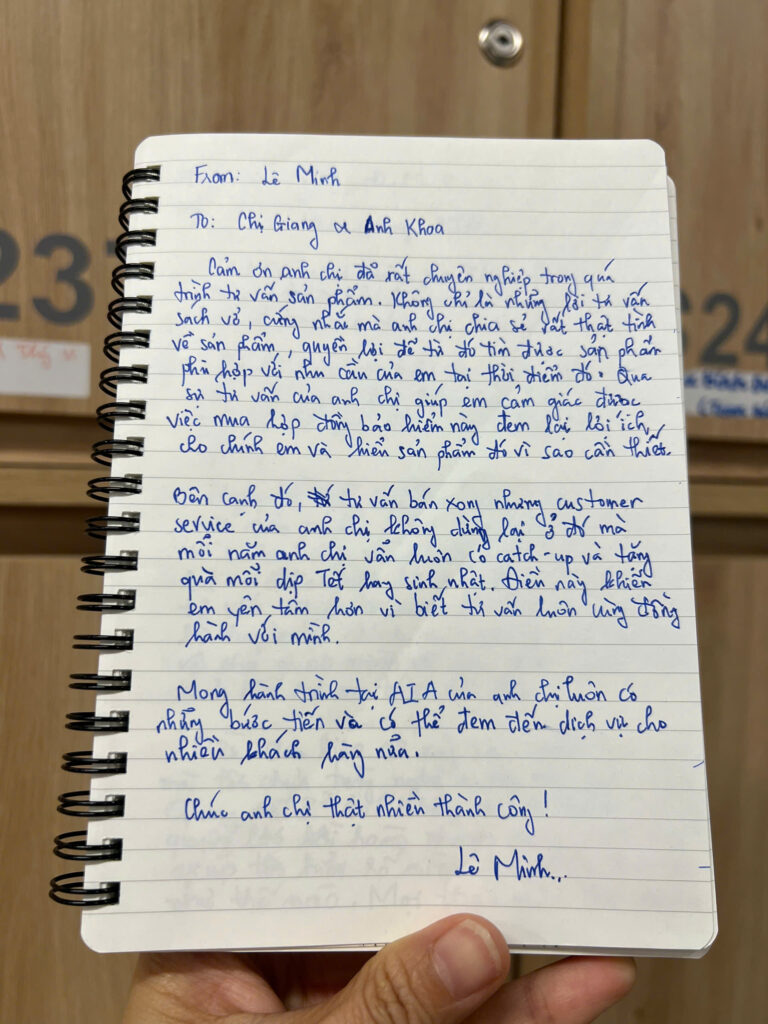 From: Lê Minh
To: Chị Giang & Anh Khoa
Cảm ơn anh chị đã rất chuyên nghiệp trong quá
trình tư vấn sản phẩm. Không chỉ là những lời tư vấn
sách vở, cứng nhắc mà anh chị chia sẻ rất thật tình
về sản phẩm, quyền lợi để từ đó tìm được sản phẩm
phù hợp với nhu cầu của em tại thời điểm đó. Qua
sự tư vấn của anh chị giúp em cảm giác được
việc mua hợp đồng bảo hiểm này đem lại lợi ích
cho chính em và hiểu sản phẩm đó vì sao cần thiết.
Bên cạnh đó, tư vấn bán xong nhưng customer
service của anh chị không dừng lại ở đó mà
mỗi năm anh chị vẫn luôn có catch-up và tặng
quà mỗi dịp Tết hay sinh nhật. Điều này khiến
em yên tâm hơn vì biết tư vấn luôn cùng đồng
hành với mình.
Mong hành trình tại AIA của anh chị luôn có
những bước tiến và có thể đem đến dịch vụ cho
nhiều khách hàng nữa.
Chúc anh chị thật nhiều thành công!
Lê Minh...
237
624